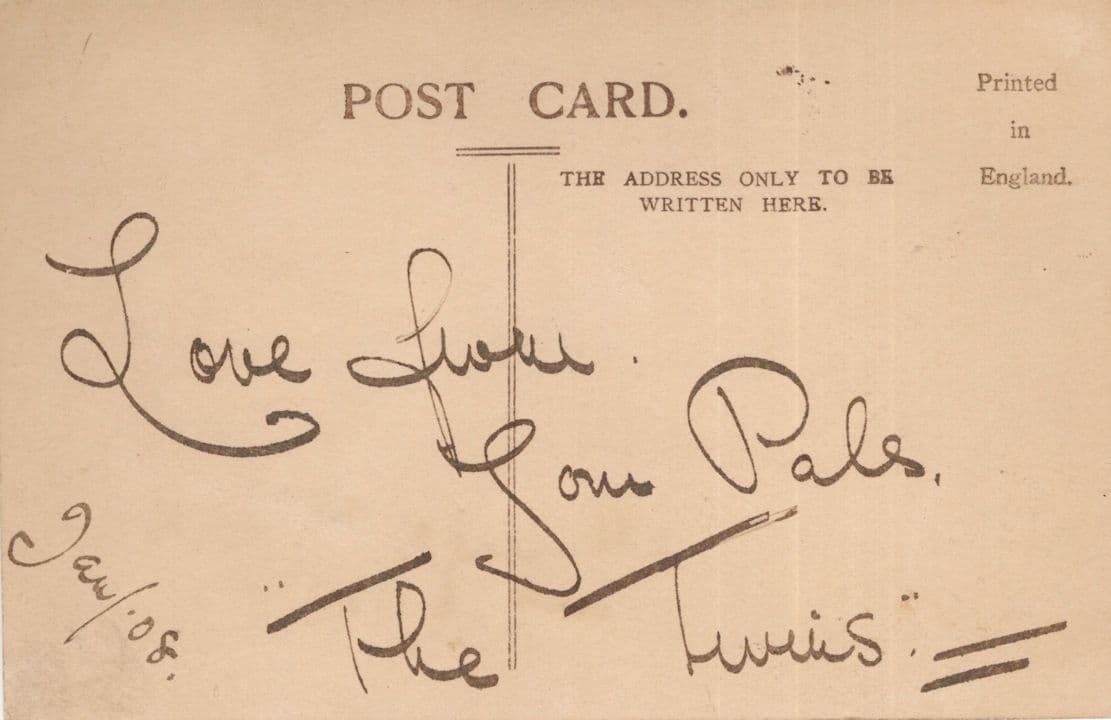 POST CARD.
Printed
in
England.
THE ADDRESS ONLY TO BE
WRITTEN HERE.
Love from.
Your Pals.
Jan/.08.
"The Twins".